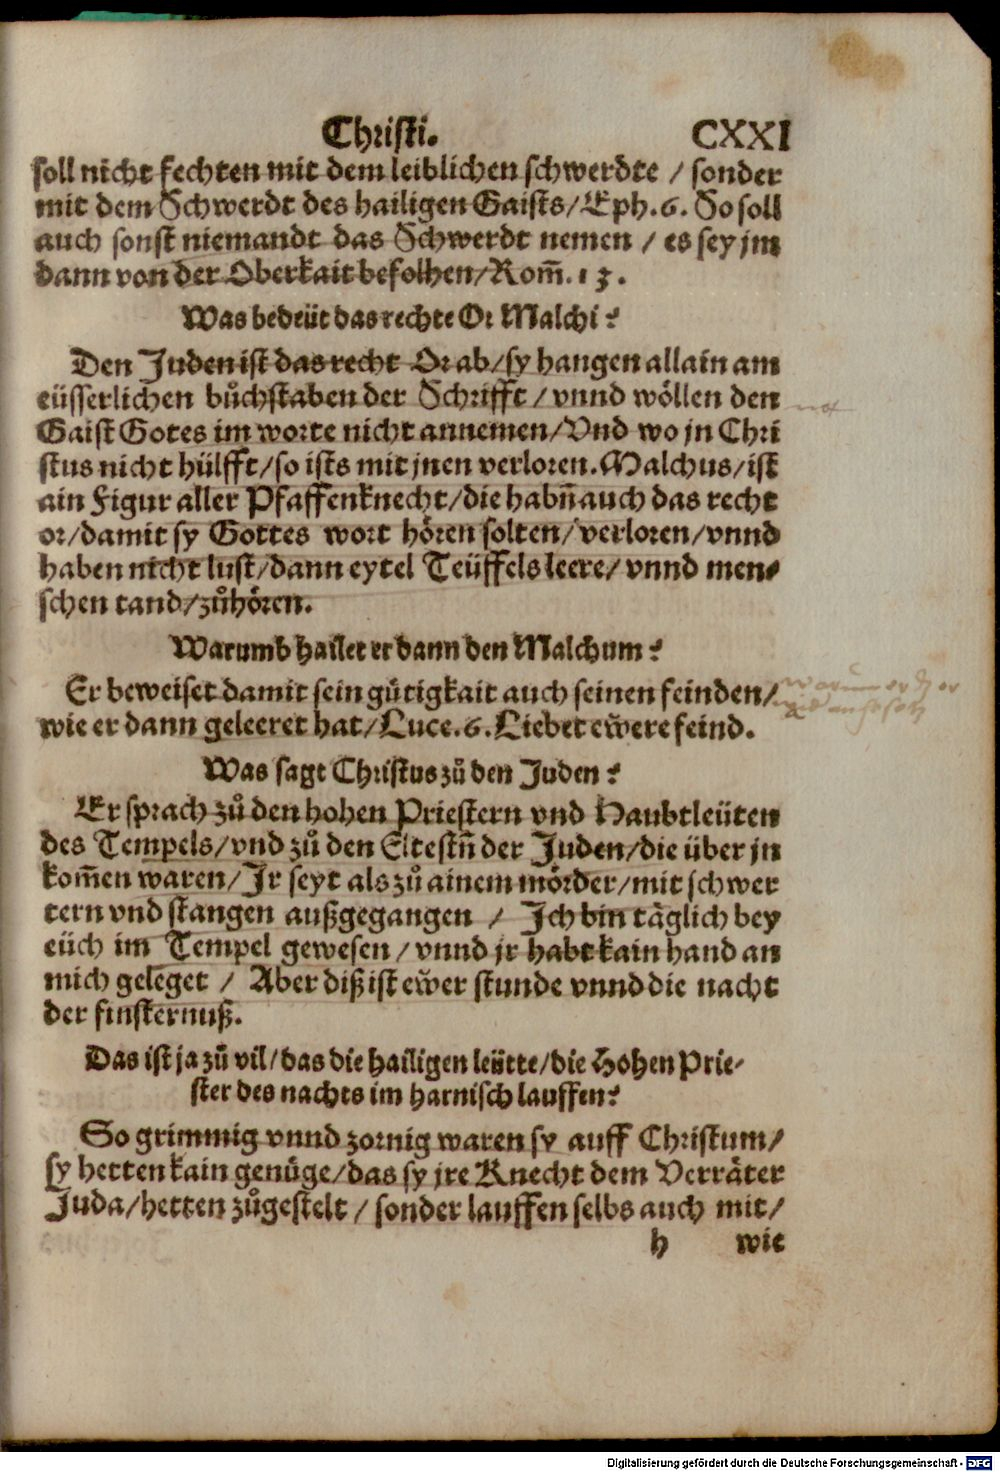 Christi. CXXI
soll nicht fechten mit dem leiblichen schwerdte / sonder
mit dem Schwerdt des hailigen Gaists/Eph.6. So soll
auch sonst niemandt das Schwerdt nemen / es sey jm
dann von der Oberkait befolhen/Rom̃.13.
Was bedeüt das rechte Or Malchi?
Den Juden ist das recht Or ab/sy hangen allain am
eüsserlichen bůchstaben der Schrifft / vnnd wöllen den
Gaist Gotes im worte nicht annemen/Vnd wo jn Chri
stus nicht hülfft/so ists mit jnen verloren.Malchus/ist
ain Figur aller Pfaffenknecht/die habñ auch das recht
or/damit sy Gottes wort hören solten/verloren/vnnd
haben nicht lust/dann eytel Teüffels leere/vnnd men-
schen tand/zůhören.
Warumb hailet er dann den Malchum?
Er beweiset damit sein gütigkait auch seinen feinden/
wie er dann geleeret hat/Luce.6.Liebet eẅere feind.
Was sagt Christus zů den Juden?
Er sprach zů den hohen Priestern vnd Haubtleüten
des Tempels/vnd zů den Eltestñ der Juden/die über jn
kom̃en waren/Jr seyt als zů ainem mörder/mit schwer
tern vnd stangen außgegangen / Ich bin täglich bey
eüch im Tempel gewesen/vnnd jr habt kain hand an
mich geleget / Aber diß ist eẅer stunde vnnd die nacht
der finsternuß.
Das ist ja zů vil/das die hailigen leütte/die Hohen Prie-
ster des nachts im harnisch lauffen?
So grimmig vnnd zornig waren sy auff Christum/
sy hetten kain genüge/das sy jre Knecht dem Verräter
Juda/hetten zůgestelt / sonder lauffen selbs auch mit/
h wie
Digitalisierung gefördert durch die Deutsche Forschungsgemeinschaft - DFG